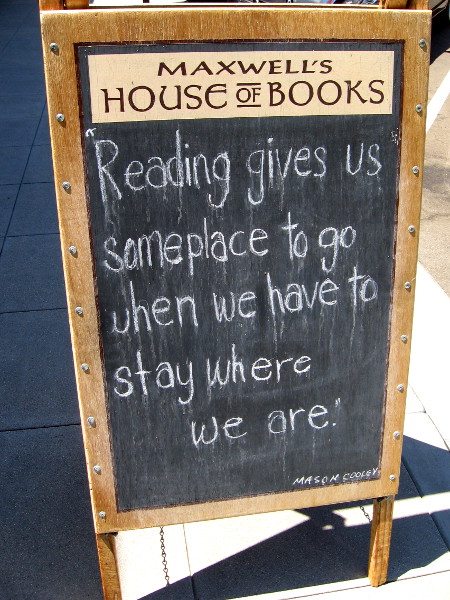 MAXWELL'S
HOUSE OF BOOKS
"Reading gives us
someplace to go
when we have to
stay where
we are."
MASON COOLEY